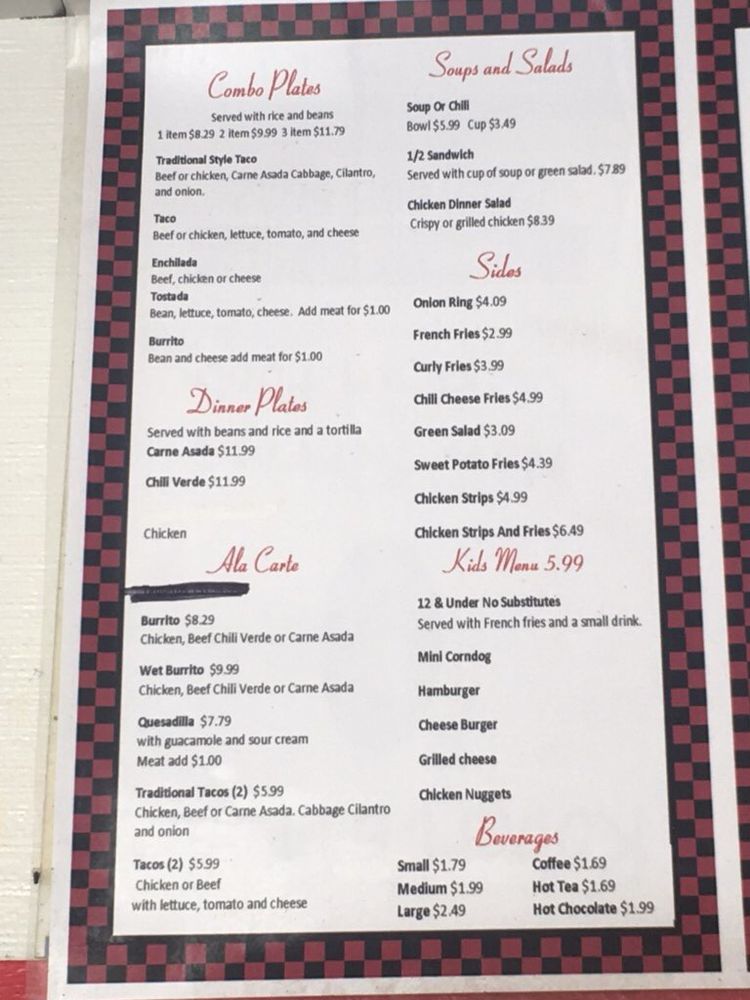 Combo Plates
Served with rice and beans
1 item $8.29 2 item $9.99 3 item $11.79
Traditional Style Taco
Beef or chicken, Carne Asada Cabbage, Cilantro,
and onion.
Taco
Beef or chicken, lettuce, tomato, and cheese
Enchilada
Beef, chicken or cheese
Tostada
Bean, lettuce, tomato, cheese. Add meat for $1.00
Burrito
Bean and cheese add meat for $1.00
Dinner Plates
Served with beans and rice and a tortilla
Carne Asada $11.99
Chili Verde $11.99
Chicken
Ala Carte
Burrito $8.29
Chicken, Beef Chili Verde or Carne Asada
Wet Burrito $9.99
Chicken, Beef Chili Verde or Carne Asada
Quesadilla $7.79
with guacamole and sour cream
Meat add $1.00
Traditional Tacos (2) $5.99
Chicken, Beef or Carne Asada. Cabbage Cilantro
and onion
Tacos (2) $5.99
Chicken or Beef
with lettuce, tomato and cheese
Soups and Salads
Soup Or Chili
Bowl $5.99 Cup $3.49
1/2 Sandwich
Served with cup of soup or green salad. $7.89
Chicken Dinner Salad
Crispy or grilled chicken $8.39
Sides
Onion Ring $4.09
French Fries $2.99
Curly Fries $3.99
Chili Cheese Fries $4.99
Green Salad $3.09
Sweet Potato Fries $4.39
Chicken Strips $4.99
Chicken Strips And Fries $6.49
Kids Menu 5.99
12 & Under No Substitutes
Served with French fries and a small drink.
Mini Corndog
Hamburger
Cheese Burger
Grilled cheese
Chicken Nuggets
Beverages
Small $1.79 Coffee $1.69
Medium $1.99 Hot Tea $1.69
Large $2.49 Hot Chocolate $1.99